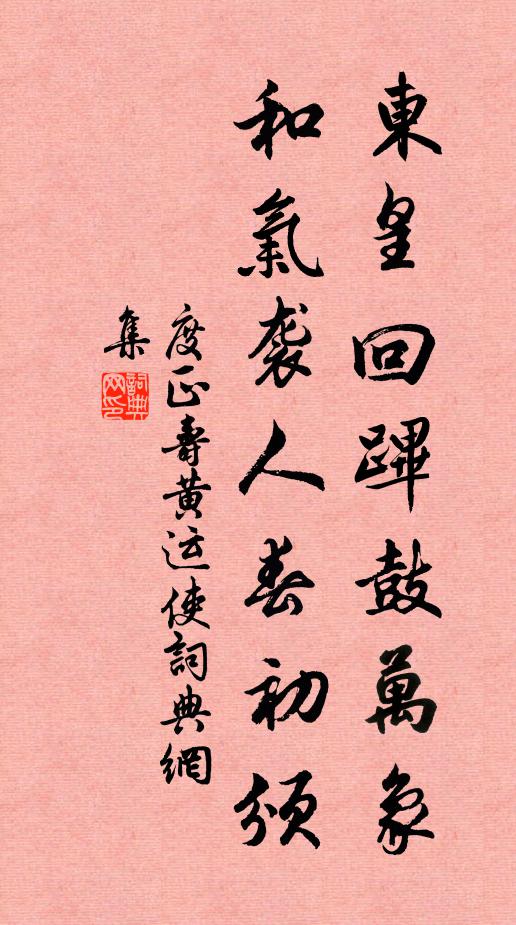 東皇回蹕鼓萬象
和氣袭人春初頒
度正壽黃运使詞典網
集
詞典网印